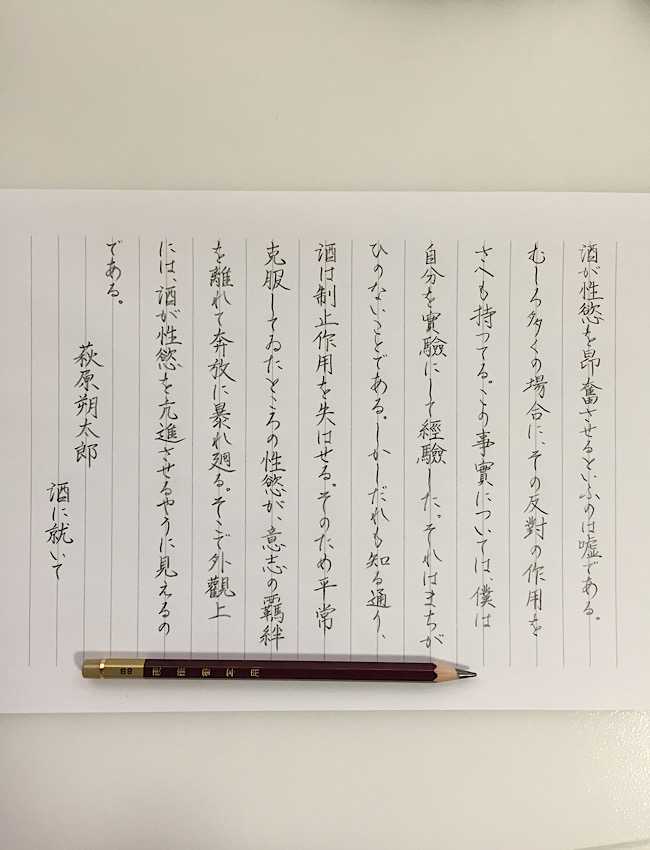 酒が性慾を昂奮させるといふのは嘘である。
むしろ多くの場合に、その反對の作用を
さへも持つてる。この事實については、僕は
自分を實驗にして經驗した。それはまちが
ひのないことである。しかしだれも知る通り、
酒は制止作用を失はせる。そのため平常
克服してゐたところの性慾が、意志の覊絆
を離れて奔放に暴れ廻る。そこで外觀上
には、酒が性慾を亢進させるやうに見えるの
である。
萩原朔太郎
酒に就いて
8B